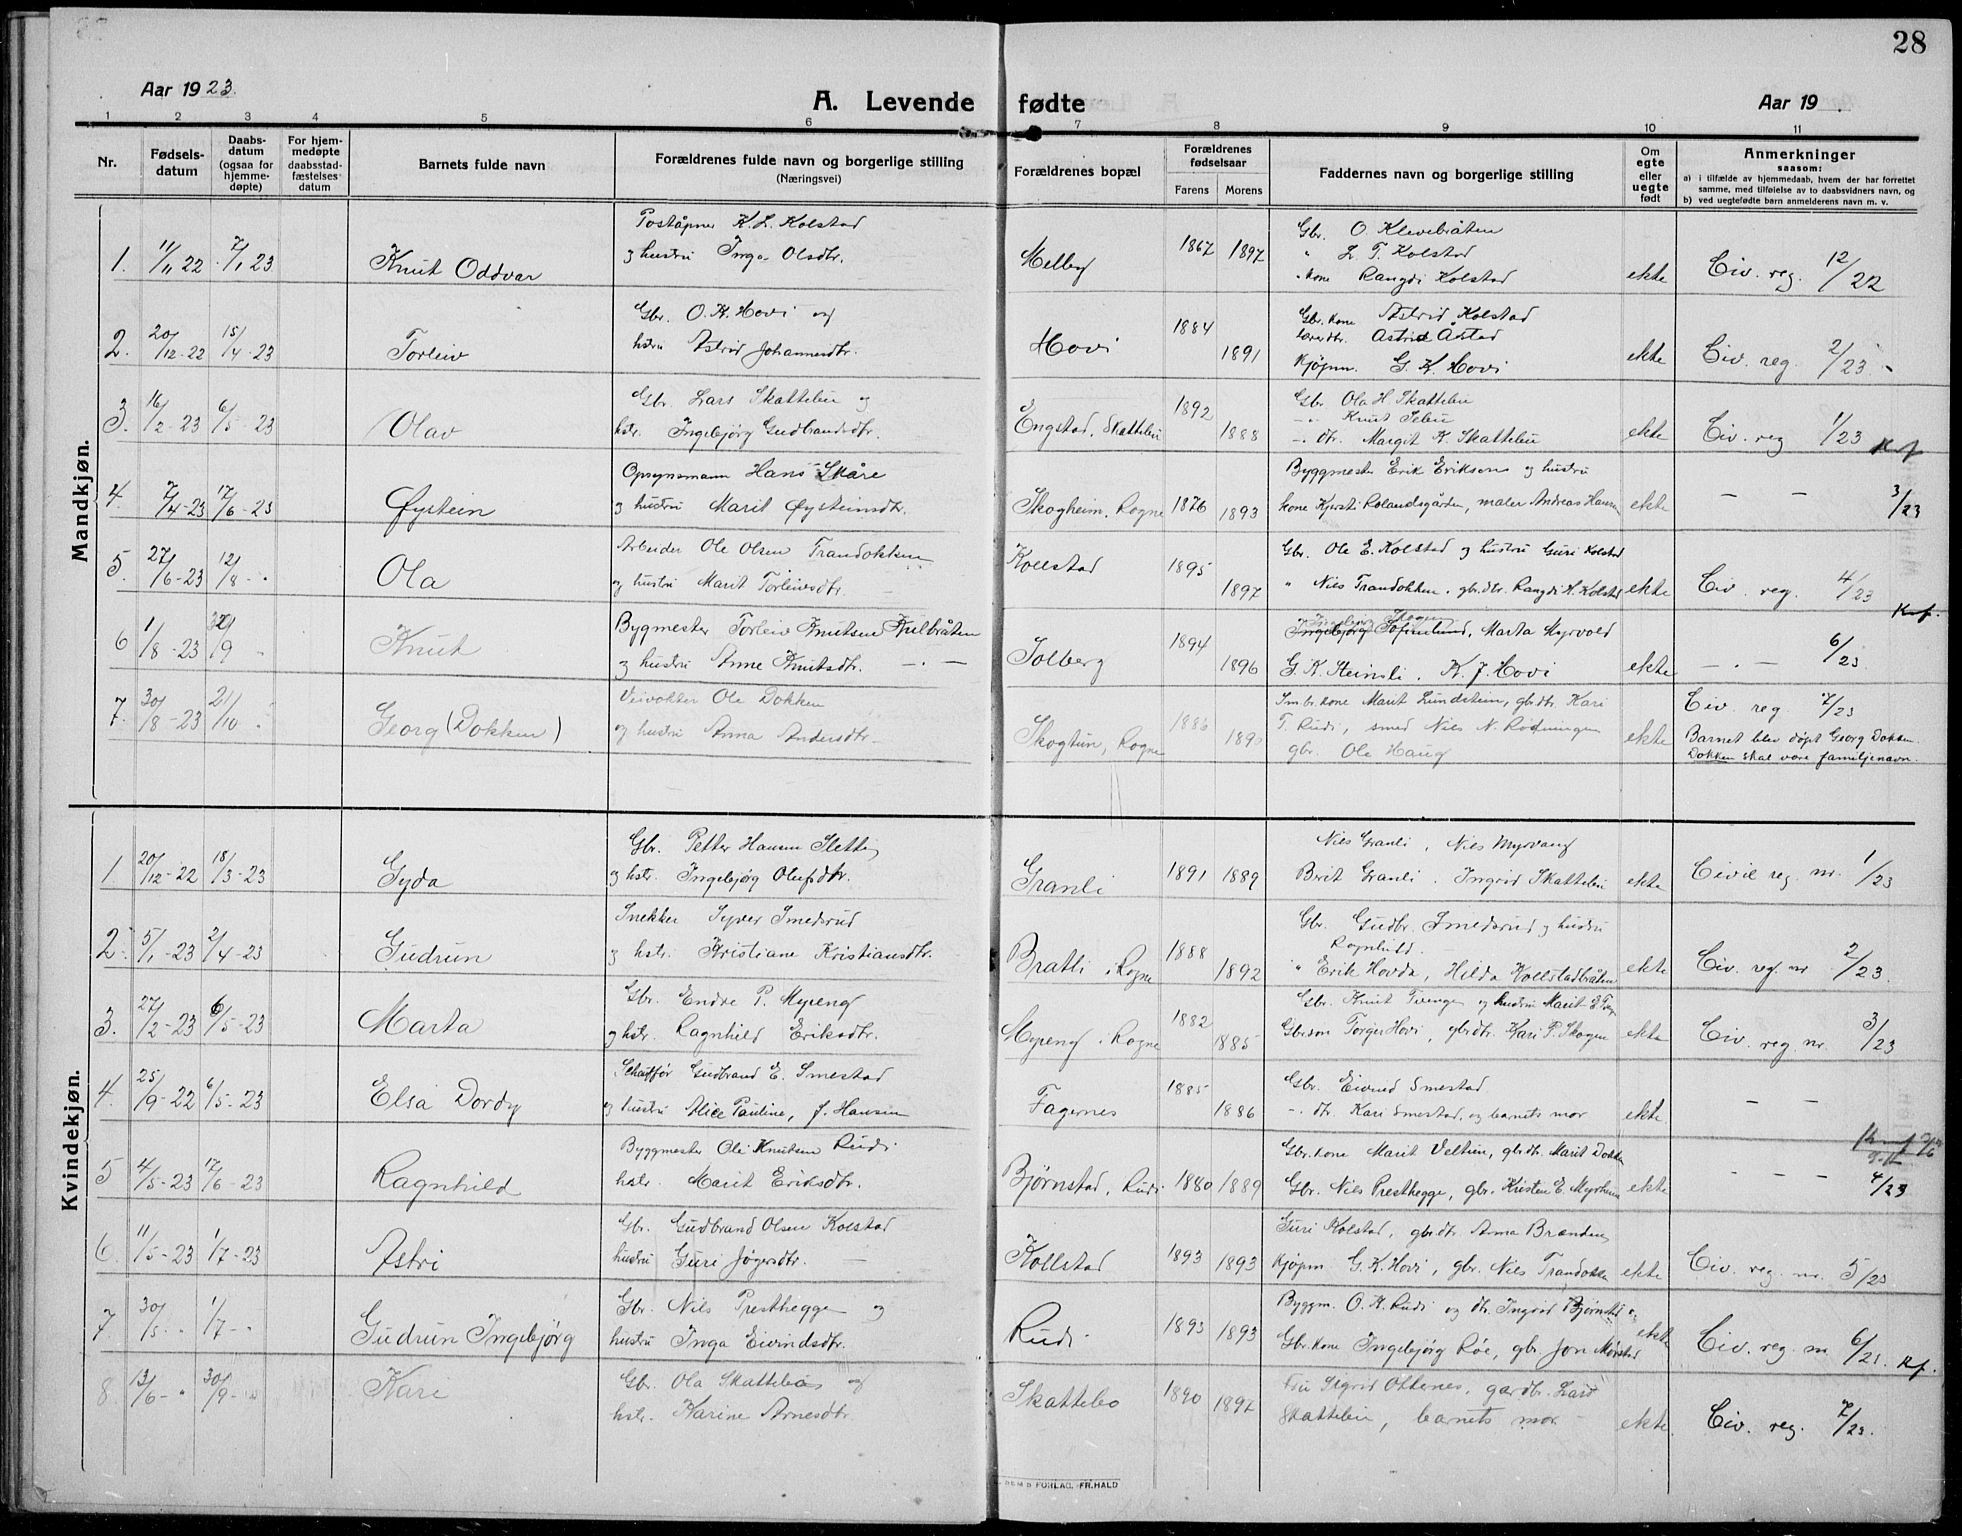 28
Aar 1923.
A. Levende fødte
Aar 19 .
1 2 3 4 5 6 7 8 9 10 11
Nr.
Fødsels-
datum
Daabs-
datum
(ogsaa for
hjemme-
døpte)
For hjem-
medøpte
daabsstad-
fæstelses
datum
Barnets fulde navn
Forældrenes fulde navn og borgerlige stilling
(Næringsvei)
Forældrenes bopæl
Forældrenes
fødselsaar
Farens Morens
Faddernes navn og borgerlige stilling
Om
egte
eller
uegte
født
Anmerkninger
saasom:
a) i tilfælde av hjemmedaab, hvem der har forrettet
samme, med tilføielse av to daabsvidners navn, og
b) ved uegtefødte barn anmelderens navn m. v.
Mandkjøn.
Poståpner K. L. Kolstad
Gbr. O. Klevebråten
1. 11/11 22 7/1 23 Knut Oddvar og hustru Inga Olsdtr. Melby 1867 1897 " L. T. Kolstad
" kone Rangdi Kolstad ekte Civ. reg. 12/22
Gbr. O. K. Hovi og
Gbr. kone Astrid Kolstad
2. 20/12-22 15/4-23 Torleiv hstru Astrid Johannesdtr. Hovi 1884 1891 Astrid Åstad
Kjøpm. G. K. Hovi ekte Civ. reg. 2/23
Gbr. Lars Skattebu og
Gbr. Ola H. Skattebu
3. 16/2-23 6/5-23 Olav hstr. Ingebjørg Gudbrandsdtr. Engstad, Skattebu 1892 1888 -"- Knut
-"- dtr. Margit K. Skattebu ekte Civ. reg 1/23 Kf
Opsynsmann Hans Skåre
Byggmester Erik Eriksen og hustru
4. 7/4-23 17/6-23 Øystein og hustru Marit Øysteinsdtr. Skogheim, Rogne 1876 1893 kone Kjersti Rolandsgården, maler Andreas Hansen ekte — — 3/23
Arbeider Ole Olsen Trandokken
Gbr. Ole E. Kolstad og hustru Guri Kolstad
5. 27/6-23 12/8 - " Ola og hustru Marit Torleivsdtr. Kollstad 1895 1897 " Nils Trandokken, gbr.dtr. Rangdi K. Kolstad ekte Civ. reg. 4/23 Kf.
Bygmester Torleiv Knutsen Kulbråten
Marta Myrvold
6 1/8-23 /9 Knut og hustru Anne Knutsdtr. — . — Solberg 1894 1896 G. K. Steinsli. K. J. Hovi ekte — . — 6/23
Veivokter Ole Dokken
kone Marit Lundstein, gbrdtr. Kari
7. 30/8-23 21/10 Georg (Dokken) og hustru Anna Andersdtr. Skogtun, Rogne 1886 T. Rudi, smed Nils N. Rodningen
gbr. Ole Haug ekte Civ. reg 7/23
Barnet blev døpt Georg Dokken.
Dokken skal være familjenavn.
Kvindekjøn.
Gbr. Petter Hansen Sletti
Nils Granli, Nils Myrvang
1. 20/12-22 18/3-23 Gyda og hstr. Ingebjørg Olufsdtr. Granli 1891 1889 Berit Granli. Ingrid Skattebu ekte Civil reg. nr. 1/23
Snekker Syver Smedsrud
Gbr. Gudbr. Smedsrud og hustru
Ragnhild
2. 5/1-23 2/4-23 Gudrun og hstr. Kristiane Kristiansdtr. Bratli i Rogne 1888 1892 " Erik Hovda, Hilda Kollstadbråten ekte Civ. reg. nr 2/23.
Gbr. Endre P. Myreng
Gbr. Knut og hustru Marit
3. 27/2-23 6/5-23 Marta og hstr. Ragnhild Eriksdtr. Myreng i Rogne 1882 1885 Gbr.søn Torger Hovi, gbrdtr. Kari P. Skogen ekte Civ. reg. nr. 3/23
Schauffør Gudbrand E. Smestad
Gbr. Eivind Smestad
4. 25/9-22 6/5-23 Elsa Dordy og hustru Alice Pauline, f. Hansen Fagernes 1885 1886 -"- dtr. Kari Smestad, og barnets mor ekte — —
Byggmester Ole Knutsen Rudi
Gbr. kone Marit Veltun, gbrdtr. Marit Dokken
5 4/5-23 17/6-23 Ragnhild hstr. Marit Eriksdtr. Bjørnstad, Rudi 1880 1889 Gbr. Nils Presthegge, gbr. Kristen E. Myrheim ekte — — 4/23
Gbr. Gudbrand Olsen Kolstad
Guri Kolstad, gbrdtr. Anna Branden
6. 11/5-23 1/7-23 Astri hustru Guri Jøgersdtr. Kollstad 1893 1893 Kjøpm G. K. Hovi, gbr. Nils Trandokken ekte Civ. reg. nr. 5/23
Gbr. Nils Presthegge og
Byggm. O. K. Rudi og dtr. Ingrid Bjørnstad
7 30/5 - " 1/7 - " Gudrun Ingebjørg hustru Inga Eivindsdtr. Rudi 1893 1893 Gbr. kone Ingebjørg Røe, gbr. Jon Mørstad ekte Civ. reg. nr 6/23. Kf.
Gbr. Ola Skattebo og
Fru Sigrid Ottenes, gardbr. Lars
8. 13/6 - " 30/9 - " Kari hstr. Karine Arnesdtr. Skattebo 1890 1897 Skattebu, barnets mor ekte Civ. reg. 7/23.
FORLAG, FR. HALD